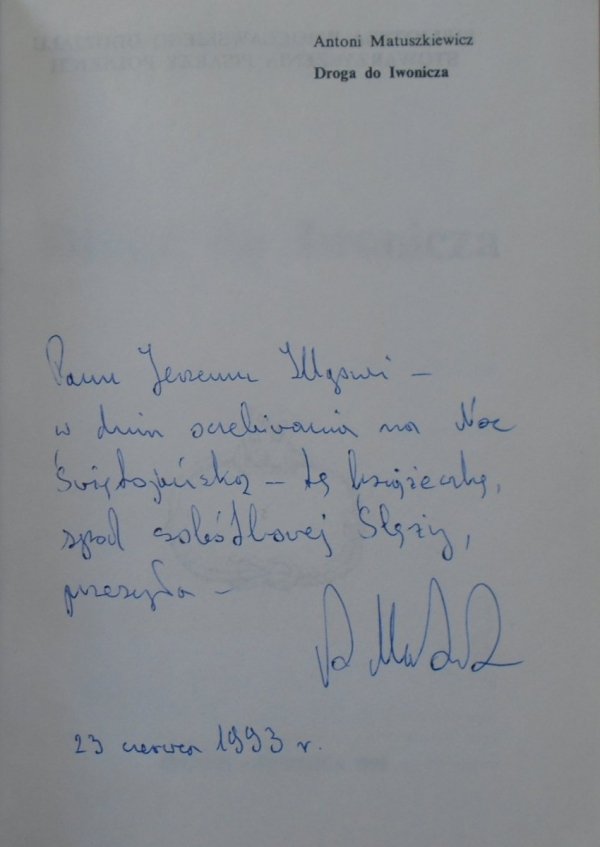 Antoni Matuszkiewicz
Droga do Iwonicza
Iwonicza
Panu Jerzemu Illgowi –
w dniu oczekiwania na Noc
Świętojańską – tę książeczkę,
spod sobótkowej Ślęży,
przesyła –
23 czerwca 1993 r.